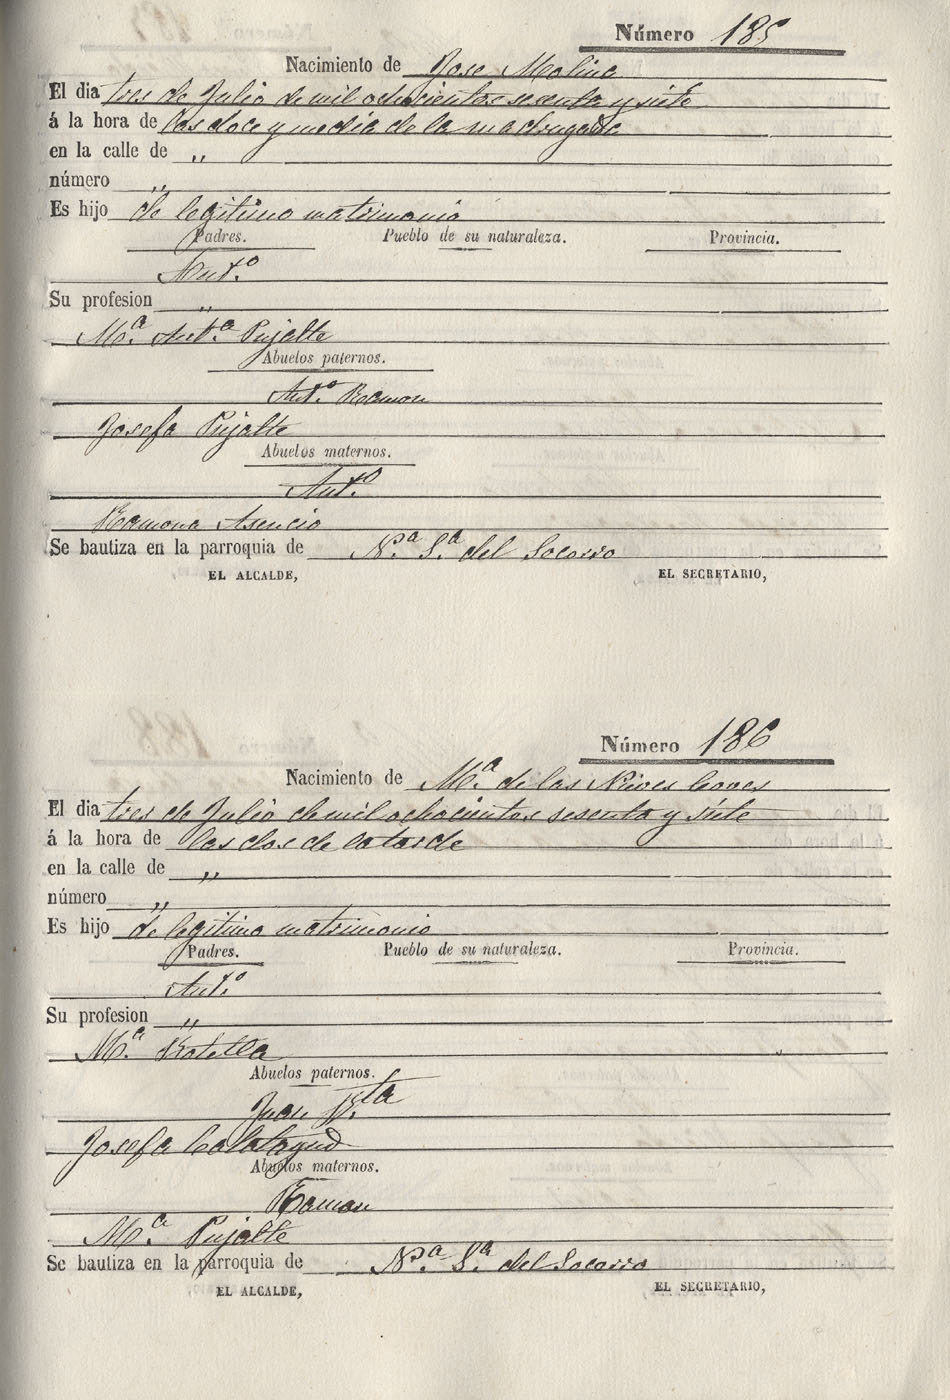 Número 185
Nacimiento de Jose Molina
El dia tres de Julio de mil ochocientos sesenta y siete
á la hora de las doce y media de la madrugada
en la calle de „
número „
Es hijo de legitimo matrimonio
Padres. Pueblo de su naturaleza. Provincia.
Ant.º
Su profesion „
M.ª Ant.ª Pujalte
Abuelos paternos.
Ant.º Ramon
Josefa Pujalte
Abuelos maternos.
Ant.º
Ramona Asencio
Se bautiza en la parroquia de N.ª S.ª del Socorro
EL ALCALDE, EL SECRETARIO,
Número 186
Nacimiento de M.ª de las Nieves
El dia tres de Julio de mil ochocientos sesenta y siete
á la hora de las dos de la tarde
en la calle de „
número „
Es hijo de legitimo matrimonio
Padres. Pueblo de su naturaleza. Provincia.
Ant.º
Su profesion „
M.ª Botella
Abuelos paternos.
Juan B.ta
Josefa Calatayud
Abuelos maternos.
Ramon
M.ª Pujalte
Se bautiza en la parroquia de N.ª S.ª del Socorro
EL ALCALDE, EL SECRETARIO,